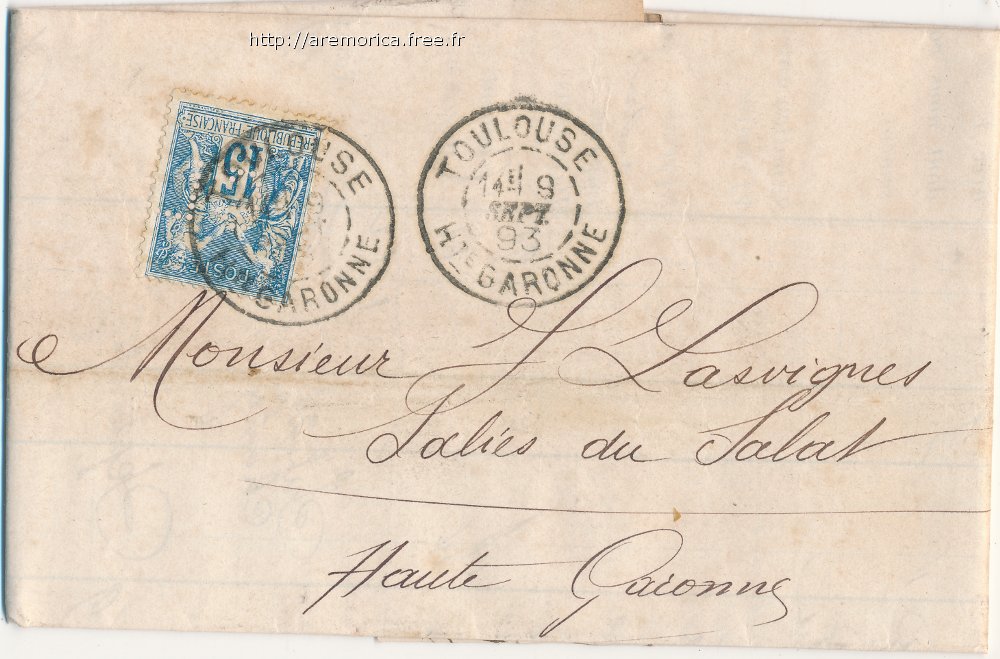 http://aremorica.free.fr
REPUBLIQUE FRANÇAISE
15
POSTE
TOULOUSE
Hte GARONNE
TOULOUSE
8
SEPT
93
Hte GARONNE
Monsieur J Lasvignes
Salies du Salat
Haute Garonne